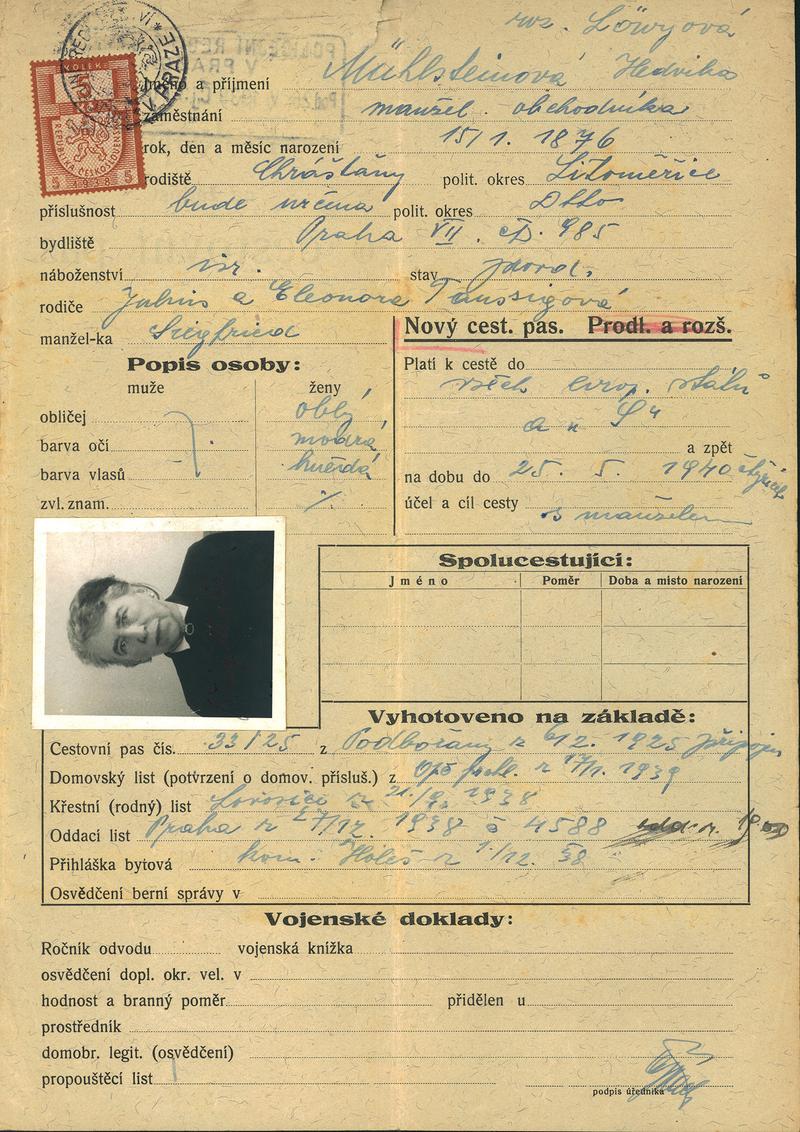 roz. Löwyová
Jméno a příjmení Mühlsteinová Hedvika
zaměstnání manžel. obchodníka
rok, den a měsíc narození 15/1. 1876
rodiště Chrášťany polit. okres Litoměřice
příslušnost bude určena polit. okres Dtto
bydliště Praha VII. čp. 985
náboženství isr. stav provd.
rodiče Julius a Eleonora Taussigová
manžel-ka Siegfried
Nový cest. pas. Prodl. a rozš.
Popis osoby:
muže ženy
obličej oblý
barva očí modrá
barva vlasů hnědá
zvl. znam. %
Platí k cestě do
všech evrop. států
a zpět
na dobu do 25. 5. 1940
účel a cíl cesty s manželem
Spolucestující:
Jméno Poměr Doba a místo narození
Vyhotoveno na základě:
Cestovní pas čís. 33/25 z Podbořany z 6/12. 1925 připojen
Domovský list (potvrzení o domov. přísluš.) z 17/1. 1939
Křestní (rodný) list Lovosice z 21/9. 1938
Oddací list Praha z 27/12. 1938 č 4588
Přihláška bytová kom. Holeš. z 1/12. 38
Osvědčení berní správy v
Vojenské doklady:
Ročník odvodu vojenská knížka
osvědčení dopl. okr. vel. v
hodnost a branný poměr přidělen u
prostředník
domobr. legit. (osvědčení)
propouštěcí list
podpis úředníka
KOLEK
REPUBLIKA ČESKOSLOVENSKÁ
5 1938 5
V PRAZE